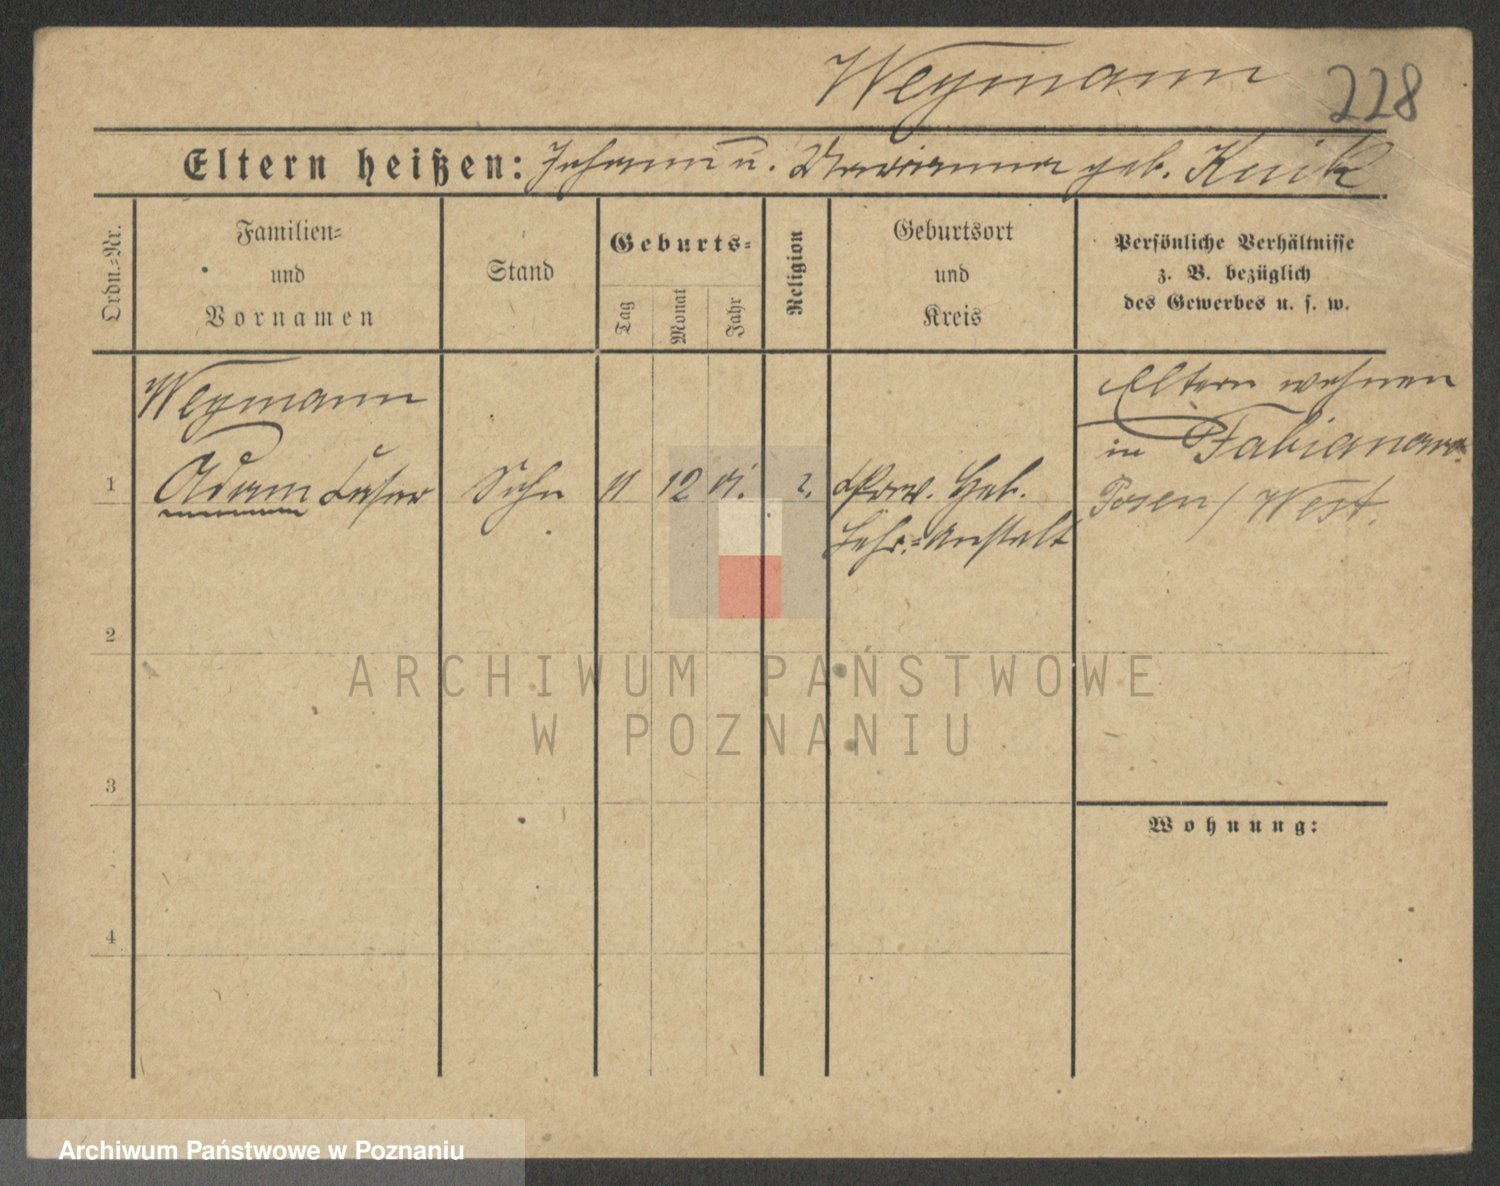 Wegmann 228
Eltern heißen: Johann u. Marianna geb. Kuik
Ordn.=Nr.
Familien=
und
Vornamen
Stand
Geburts=
Tag
Monat
Jahr
Religion
Geburtsort
und
Kreis
Persönliche Verhältnisse
z. B. bezüglich
des Gewerbes u. s. w.
Wegmann
1
Adam
Sohn
11
12
Prov. Heb.
Lehr.=Anstalt
Eltern wohnen
in
Posen / West.
2
3
4
Wohnung:
ARCHIWUM PAŃSTWOWE
W POZNANIU
Archiwum Państwowe w Poznaniu